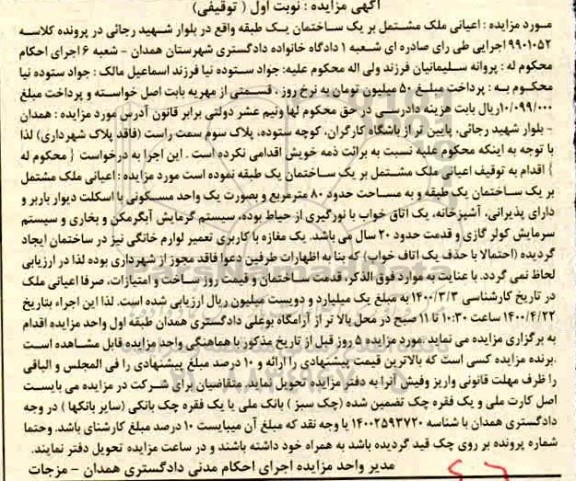 آگهی مزایده : نوبت اول ( توقیفی)
مورد مزایده : اعیانی ملک مشتمل بر یک ساختمان یک طبقه واقع در بلوار شهید رجائی در پرونده کلاسه
۹۹۰۱۰۵۲ اجرایی طی رای صادره ای شعبه ۱ دادگاه خانواده دادگستری شهرستان همدان - شعبه ۶ اجرای احکام
محکوم له : پروانه سلیمانیان فرزند ولی اله محکوم علیه: جواد ستوده نیا فرزند اسماعیل مالک : جواد ستوده نیا
محکوم به : پرداخت مبلغ ۵۰ میلیون تومان به نرخ روز ، قسمتی از مهریه بابت اصل خواسته و پرداخت مبلغ
۱۰/۰۹۹/۰۰۰ریال بابت هزینه دادرسی در حق محکوم لها ونیم عشر دولتی برابر قانون آدرس مورد مزایده : همدان
- بلوار شهید رجائی، پایین تر از باشگاه کارگران، کوچه ستوده، پلاک سوم سمت راست (فاقد پلاک شهرداری) لذا
با توجه به اینکه محکوم علیه نسبت به برائت ذمه خویش اقدامی نکرده است . این اجرا به درخواست { محکوم له
} اقدام به توقیف اعیانی ملک مشتمل بر یک ساختمان یک طبقه نموده است مورد مزایده : اعیانی ملک مشتمل
بر یک ساختمان یک طبقه و به مساحت حدود ۸۰ مترمربع و بصورت یک واحد مسکونی با اسکلت دیوار باربر و
دارای پذیرائی، آشپزخانه، یک اتاق خواب با نورگیری از حیاط بوده، سیستم گرمایش آبگرمکن و بخاری و سیستم
سرمایش کولر گازی و قدمت حدود ۲۰ سال می باشد. یک مغازه با کاربری تعمیر لوازم خانگی نیز در ساختمان ایجاد
گردیده (احتمالا با حذف یک اتاف خواب) که بنا به اظهارات طرفین دعوا فاقد مجوز از شهرداری بوده لذا در ارزیابی
لحاظ نمی گردد. با عنایت به موارد فوق الذکر، قدمت ساختمان و قیمت روز ساخت و امتیازات، صرفا اعیانی ملک
در تاریخ کارشناسی ۱۴۰۰/۳/۳ به مبلغ یک میلیارد و دویست میلیون ریال ارزیابی شده است. لذا این اجراء بتاریخ
۱۴۰۰/۴/۲۲ ساعت ۱۰:۳۰ تا ۱۱ صبح در محل بالا تر از آرامگاه بوعلی دادگستری همدان طبقه اول واحد مزایده اقدام
به برگزاری مزایده می نماید .مورد مزایده ۵ روز قبل از تاریخ مذکور با هماهنگی واحد مزایده قابل مشاهده است
.برنده مزایده کسی است که بالاترین قیمت پیشنهادی را ارائه و ۱۰ درصد مبلغ پیشنهادی را فی المجلس و الباقی
را ظرف مهلت قانونی واریز وفیش آنرا به دفتر مزایده تحویل نماید. متقاضیان برای شرکت در مزایده می بایست
اصل کارت ملی و یک فقره چک تضمین شده (چک سبز ) بانک ملی یا یک فقره چک بانکی (سایر بانکها ) در وجه
دادگستری همدان با شناسه ۱۴۰۰۲۵۹۳۷۲۰ یا وجه نقد که مبلغ آن میبایست ۱۰ درصد مبلغ کارشناسی باشد. وحتما
شماره پرونده بر روی چک قید گردیده باشد به همراه خود داشته باشند و در ساعت مزایده تحویل دفتر نمایند.
مدیر واحد مزایده اجرای احکام مدنی دادگستری همدان - مزجات